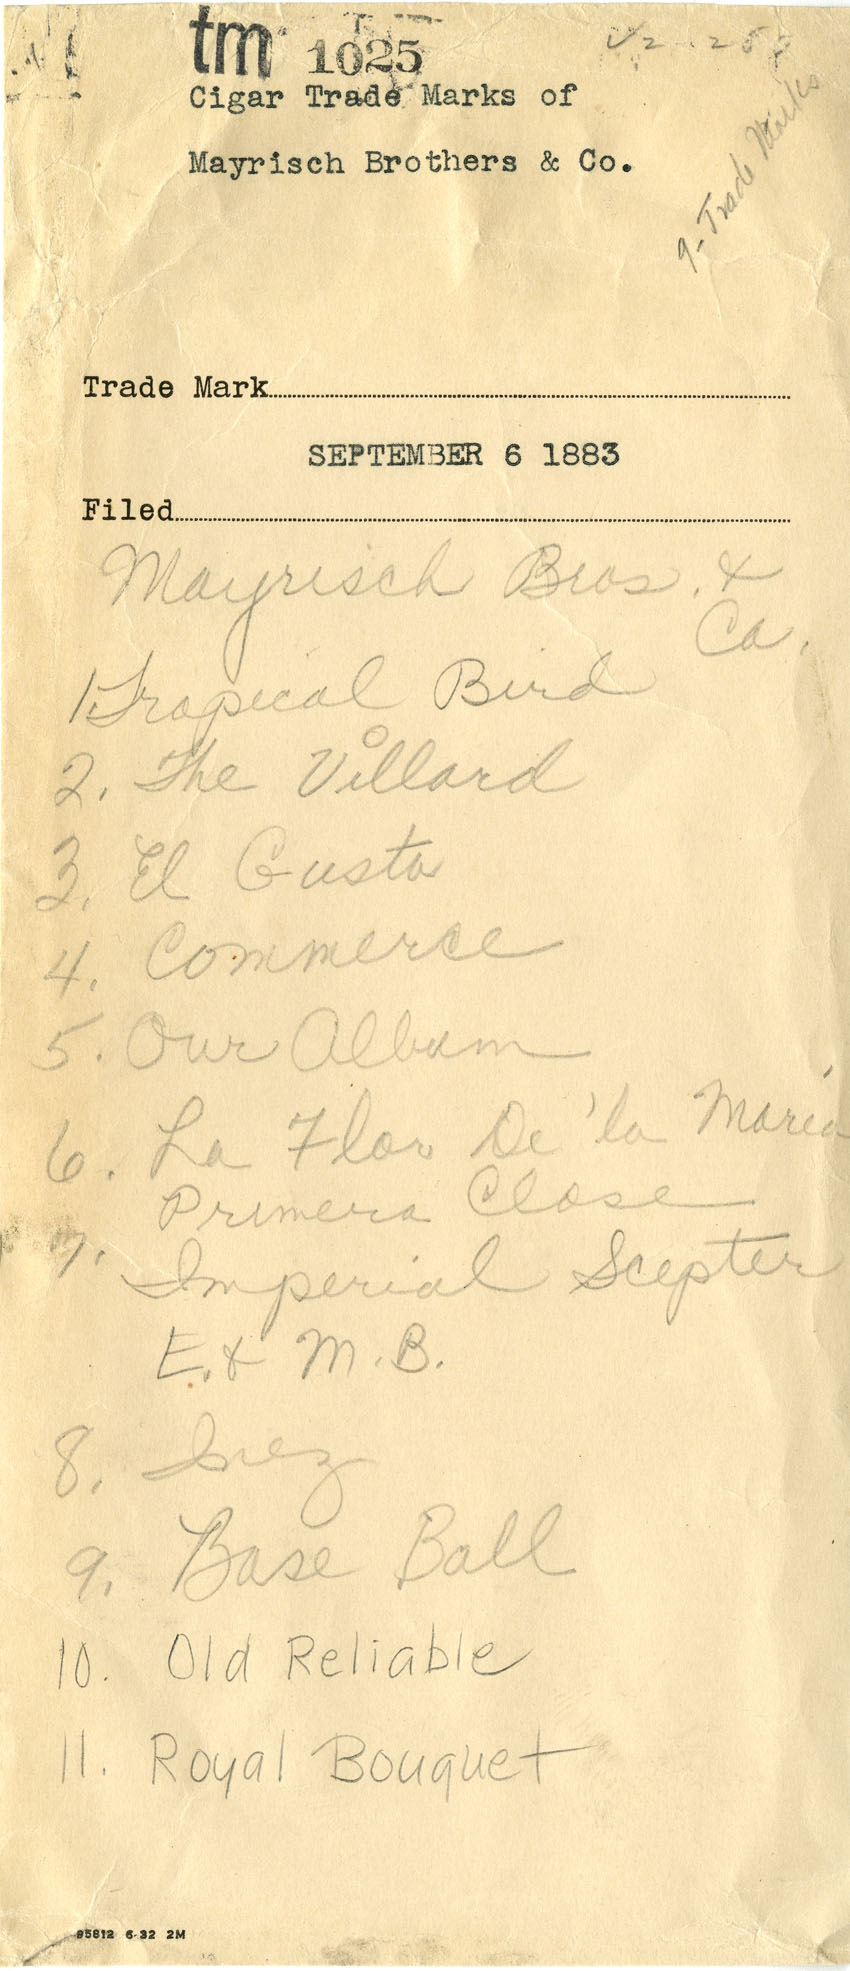 tm 1025
Cigar Trade Marks of
Mayrisch Brothers & Co.
9- Trade Marks
Trade Mark
SEPTEMBER 6 1883
Filed
Mayrisch Bros. &
Co.
1. Tropical Bird
2. The Villard
3. El Gusto
4. Commerce
5. Our Album
6. La Flor De 'la Maria
Primera Close
7. Imperial Scepter
E. & M. B.
8. Inez
9. Base Ball
10. Old Reliable
11. Royal Bouquet
95812 6-32 2M